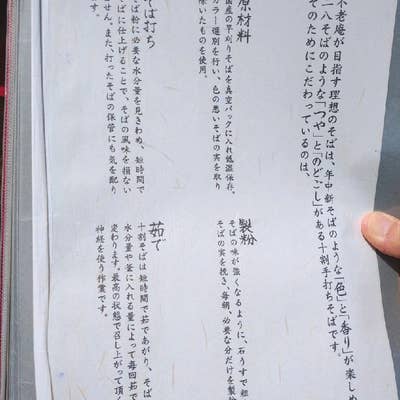 不老庵が目指す理想のそばは、年中新そばのような「色」と「香り」が楽しめ
二八そばのような「つや」と「のどごし」がある十割手打ちそばです。
そのためにこだわっているのは、
原材料
国産の早刈りそばを真空パックに入れ低温保存。
カラー選別を行い、色の悪いそばの実を取り
除いたものを使用。
製粉
そばの味が強くなるように、石うすで粗
そばの実を挽き、毎朝、必要な分だけを製粉
そば打ち
そば粉に必要な水分量を見きわめ、短時間で
そばに仕上げることで、そばの風味を損ない
ません。また、打ったそばの保管にも気を配り
茹で
十割そばは短時間で茹であがり、そば
水分量や釜に入れる量によって毎回茹で
変わります。最高の状態で召し上がって頂
神経を使う作業です。